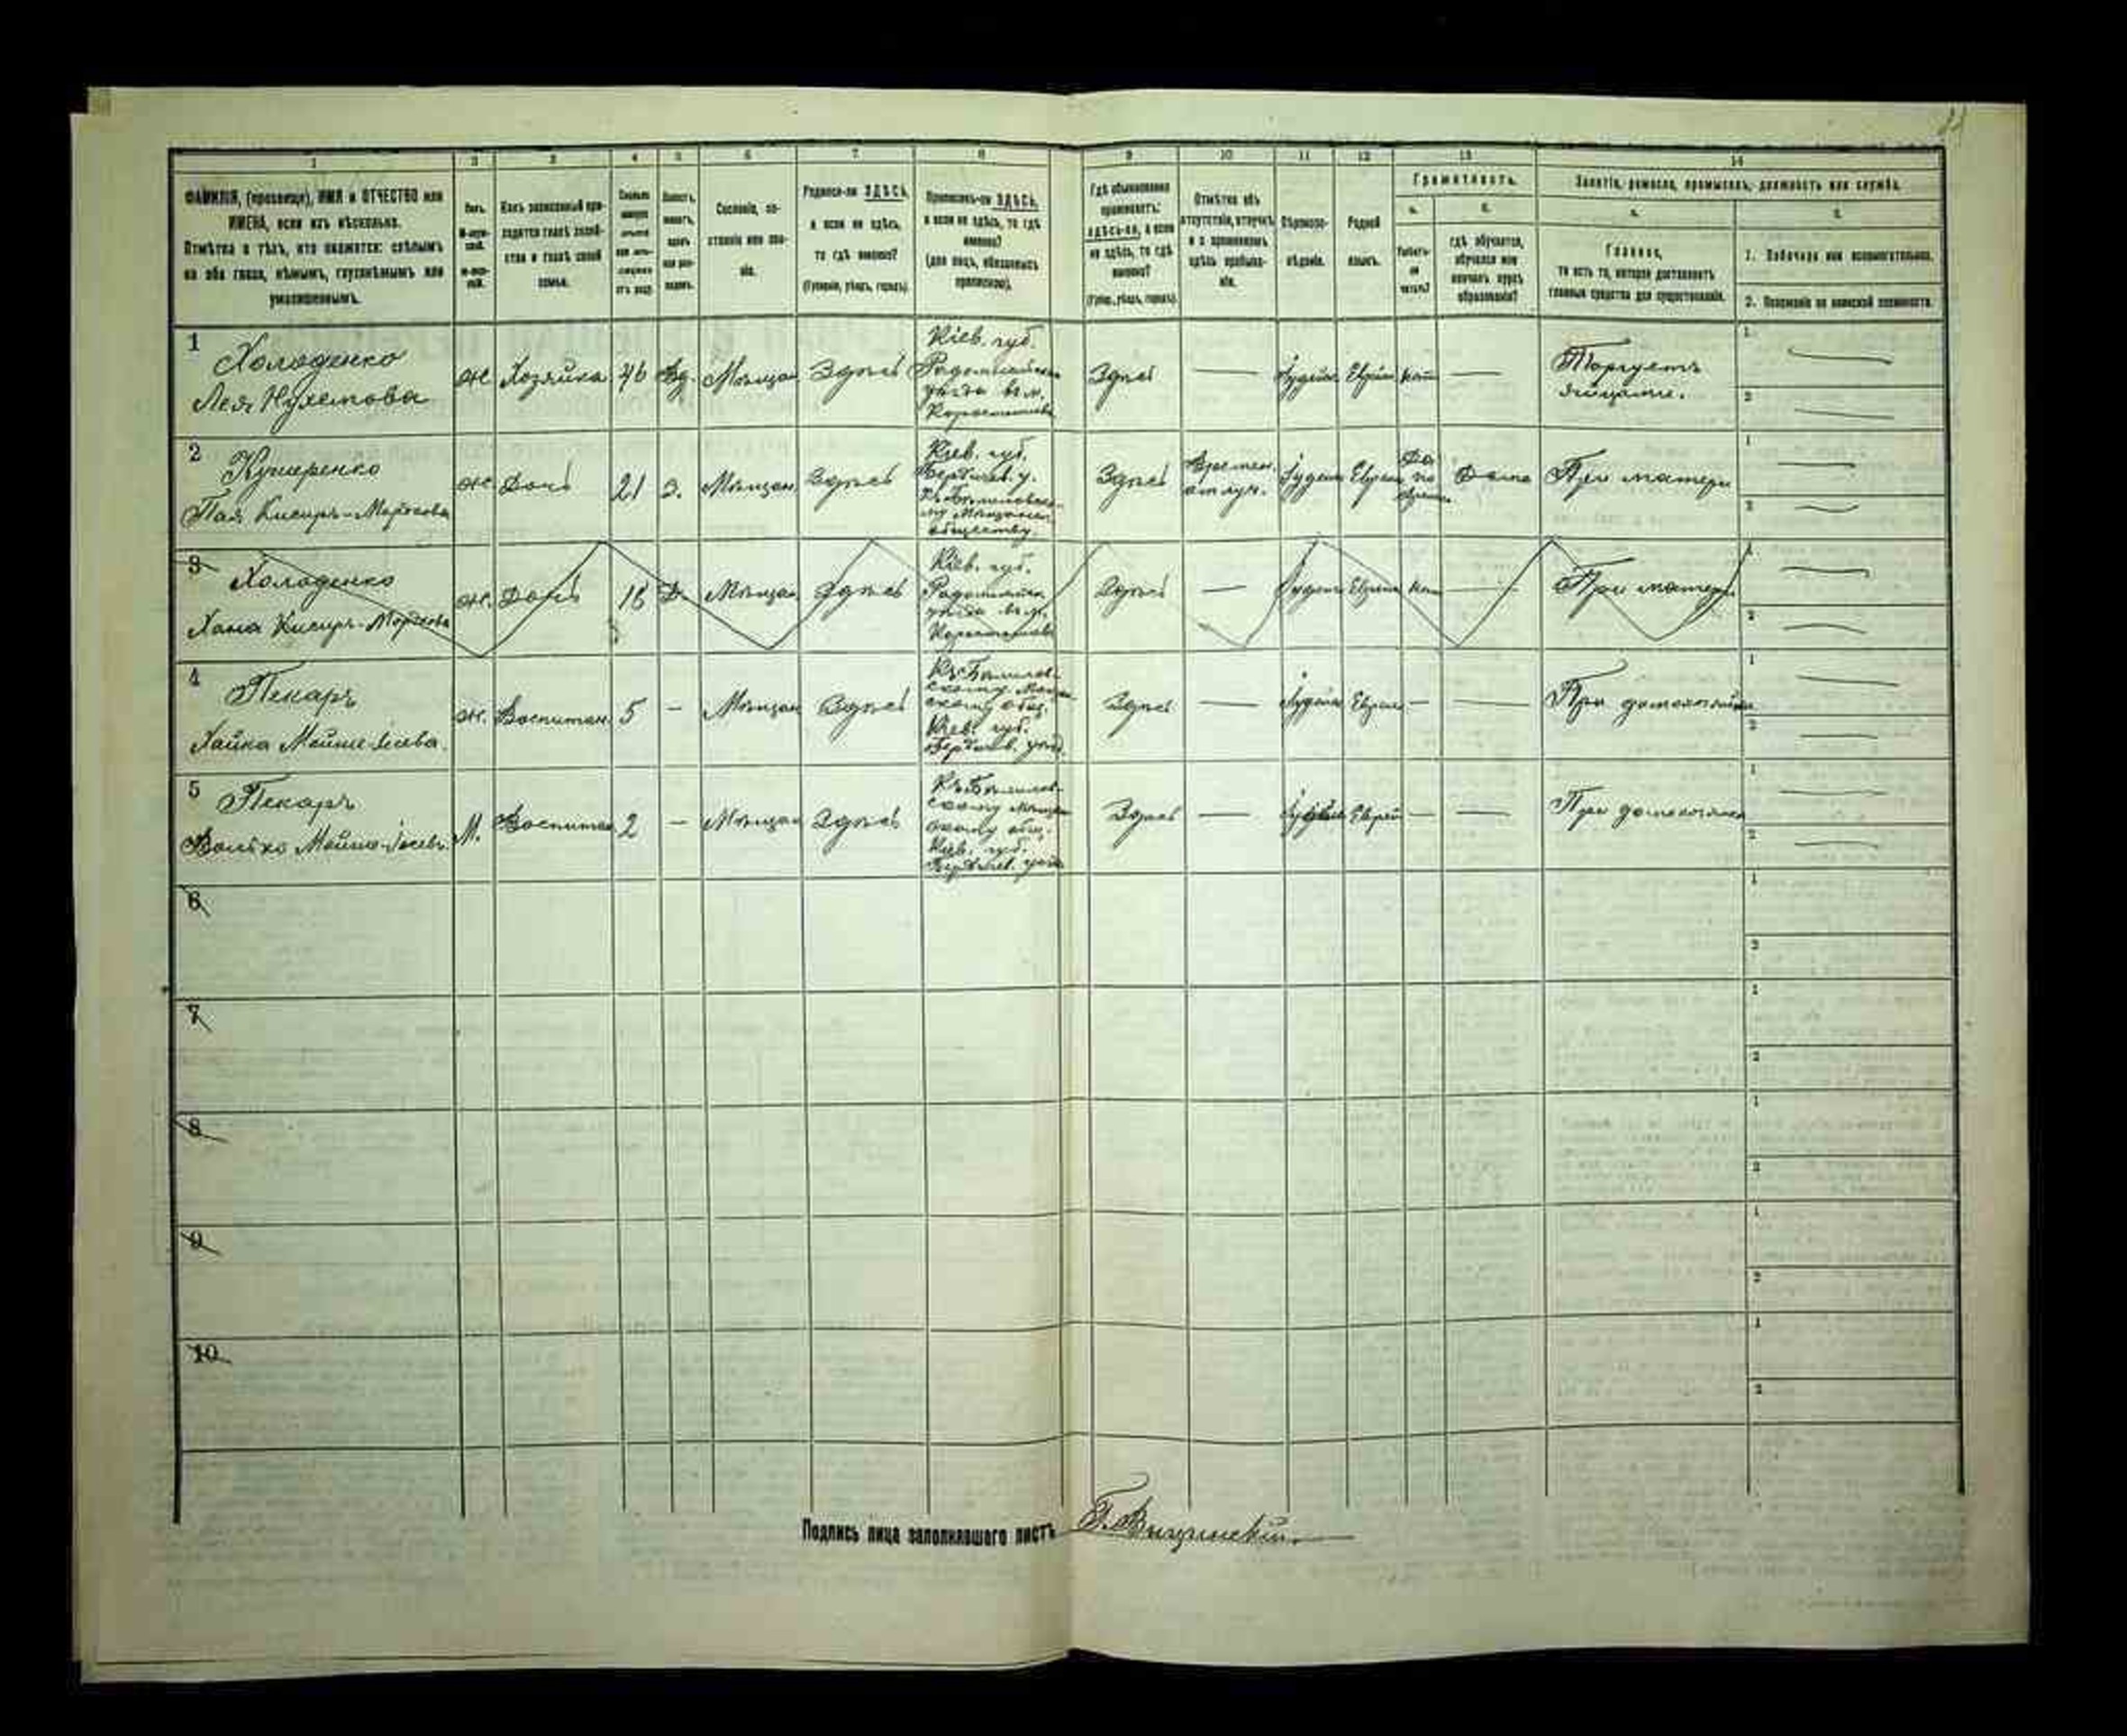 1
2
3
4
5
6
7
8
9
10
11
12
13
14
ФАМИЛІЯ, (прозвище), ИМЯ и ОТЧЕСТВО или
ИМЕНА, если ихъ нѣсколько.
Отмѣтка о тѣхъ, кто окажется: слѣпымъ
на оба глаза, нѣмымъ, глухонѣмымъ или
умалишеннымъ.
Полъ.
Какъ записанный при-
ходится главѣ хозяй-
ства и главѣ своей
семьи.
Сословіе, со-
стояніе или зва-
ніе.
Родился-ли ЗДѢСЬ,
а если не здѣсь,
то гдѣ именно?
(Губернія, уѣздъ, городъ).
Приписанъ-ли ЗДѢСЬ,
а если не здѣсь, то гдѣ
именно?
(для лицъ, обязанныхъ
припискою).
Гдѣ обыкновенно
проживаетъ:
здѣсь-ли, а если
не здѣсь, то гдѣ
именно?
(Губер., уѣздъ, городъ).
Отмѣтка объ
отсутствіи, отлучкѣ
и о временномъ
здѣсь пребыва-
ніи.
Вѣроиспо-
вѣданіе.
Родной
языкъ.
Грамотность.
а.
б.
Умѣетъ-
ли
читать?
гдѣ обучается,
обучался или
кончилъ курсъ
образованія?
Занятіе, ремесло, промыселъ, должность или служба.
а.
б.
Главное,
то есть то, которое доставляетъ
главныя средства для существованія.
1. Побочное или вспомогательное.
2. Положеніе по воинской повинности.
1
Холоденко
Лея Нухемова
ж
Хозяйка
46
Вд.
Мѣщан
Здѣсь
Кіев. губ.
Радомысльск
уѣзда въ м.
Коростышев
Здѣсь
—
Іудейс
Еврей
нѣт
—
Торгуетъ
яйцами.
1
2
2
Кушеренко
Пая Кисиръ-Мордкова
ж
Дочь
21
З.
Мѣщан
Здѣсь
Кіев. губ.
Бердичев. у.
Къ Бѣлиловско-
му Мѣщанск.
обществу
Здѣсь
Времен.
отлуч.
Іудейс
Еврей
Да
по
Дома
При матери
1
2
3
Холоденко
Хана Кисиръ-Мордкова
ж.
Дочь
18
Д.
Мѣщан
Здѣсь
Кіев. губ.
Радомысльск
уѣзда въ м.
Коростышев
Здѣсь
—
Іудейс
Еврей
нѣт
—
При матери
1
2
4
Пекаръ
Хайка Мойше-Іосева.
ж.
Воспитан.
5
-
Мѣщан
Здѣсь
Къ Бѣлилов-
скому Мѣщан
скому общ.
Кіев. губ.
Бердичев. уѣзд.
Здѣсь
—
Іудейс
Еврей
—
—
При домохозяйк
1
2
5
Пекаръ
Волько Мойше-Іосевъ.
М.
Воспитан
2
-
Мѣщан
Здѣсь
Къ Бѣлилов-
скому Мѣщан
скому общ.
Кіев. губ.
Бердичев. уѣзд
Здѣсь
—
Іудейс
Еврей
—
—
При домохозяйк
1
2
6
1
2
7
1
2
8
1
2
9
1
2
10
1
2
Подпись лица заполнявшаго листъ